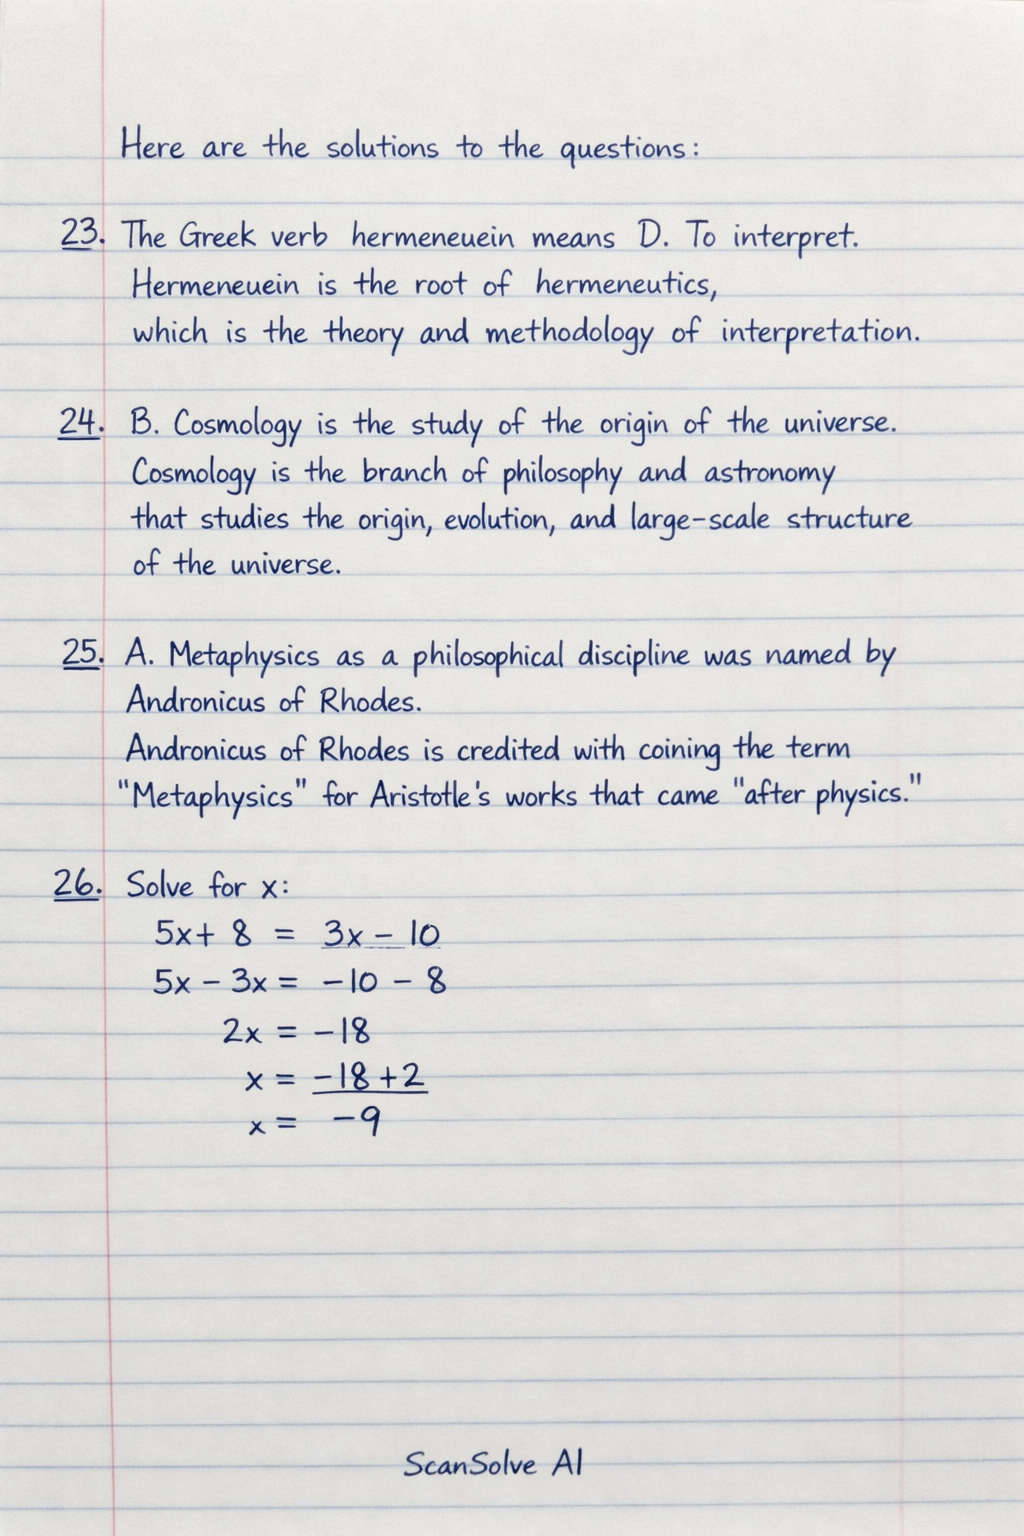 Here are the solutions to the questions:
23. The Greek verb hermeneuein means D. To interpret.
Hermeneuein is the root of hermeneutics,
which is the theory and methodology of interpretation.
24. B. Cosmology is the study of the origin of the universe.
Cosmology is the branch of philosophy and astronomy
that studies the origin, evolution, and large-scale structure
of the universe.
25. A. Metaphysics as a philosophical discipline was named by
Andronicus of Rhodes.
Andronicus of Rhodes is credited with coining the term
"Metaphysics" for Aristotle's works that came "after physics."
26. Solve for x:
5x+ 8 = 3x - 10
5x - 3x = -10 - 8
2x = -18
x = -18 +2
x = -9
ScanSolve AI